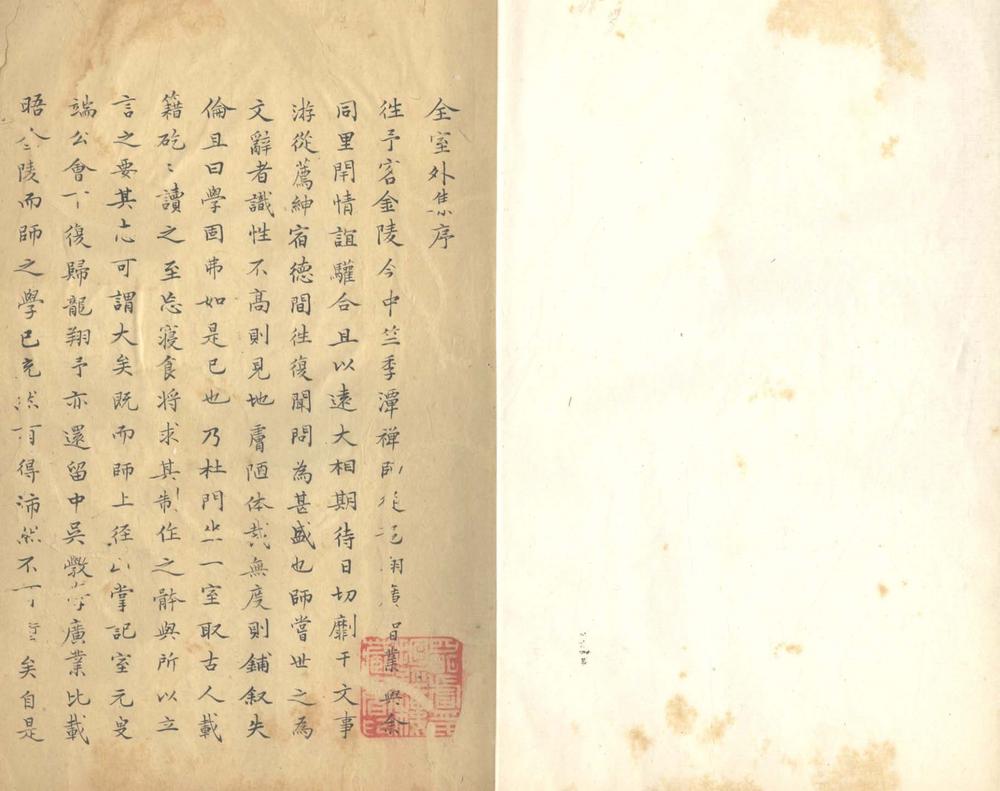 全室外集序
徃予客金陵今中竺季潭禅師從 翔廣 習業與余
同里閈情誼驩合且以逺大相期待日切劘于文事
游從薦紳宿德間徃復聞問為甚盛也師嘗世之為
文辭者識性不高則見地膚陋体裁無度則鋪叙失
倫且曰學固弗如是已也乃杜門坐一室取古人載
籍矻〻讀之至忘寝食将求其制作之骵與所以立
言之要其志可謂大矣既而師上径山掌記室元叟
端公會下復歸龍翔予亦還留中吴斅 廣業比載
晤金陵而師之學已充然有得沛然不可 矣自是